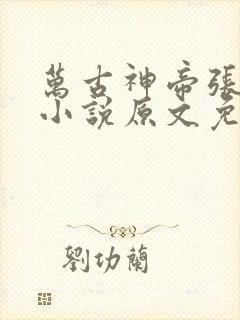 萬古神帝張
小說原文免
劉功蘭